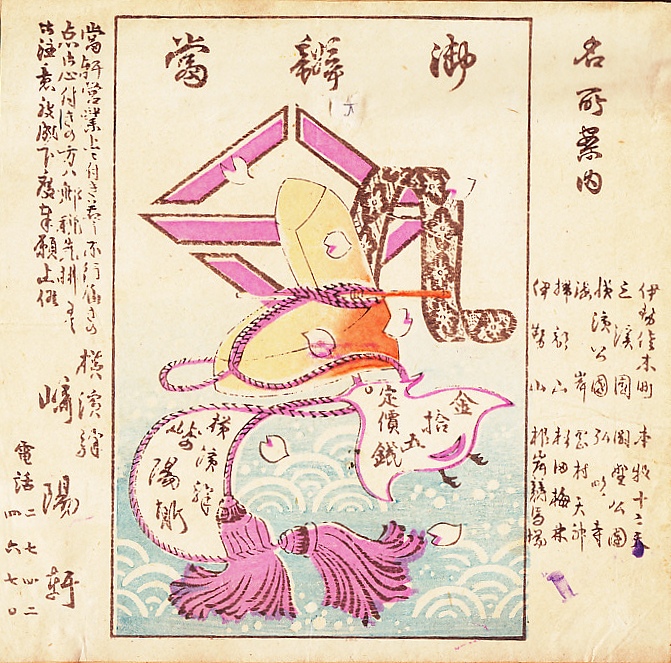 名所案内
伊勢佐木町 本牧十二天
三溪園 公園
横濱公園 弘明寺
海岸 岡村天神
掃部山 杉田梅林
伊勢山 根岸競馬場
御辨當
定價
金拾五錢
横濱驛
崎陽軒
當軒営業上に付き不行届きの
点御心付きの方ハ
御注意被成下度奉願上候
横濱驛
崎陽軒
電話 二七四二
四六七〇